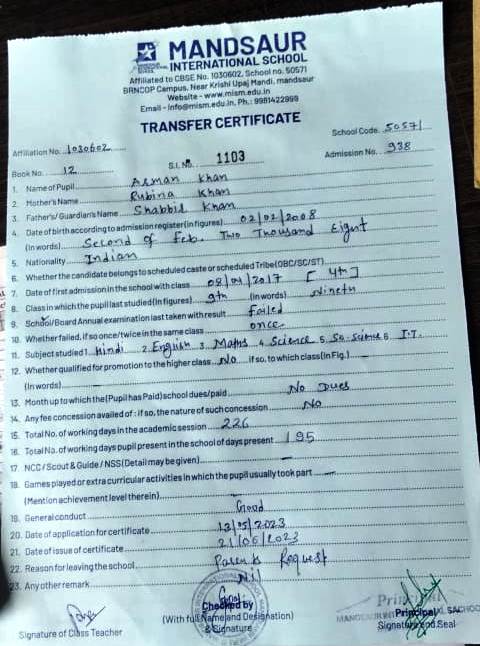 MANDSAUR
INTERNATIONAL SCHOOL
Affiliated to CBSE No. 1030602, School no. 50571
BRNCOP Campus, Near Krishi Upaj Mandi, mandsaur
Website - www.mism.edu.in
Email - info@mism.edu.in, Ph.: 9981422959
TRANSFER CERTIFICATE
Affiliation No. 1030602 School Code. 50571
Book No. 12 S.I. No. 1103 Admission No. 938
1. Name of Pupil Arman Khan
2. Mother's Name Rubina Khan
3. Father's/ Guardian's Name Shabbir Khan
4. Date of birth according to admission register (in figures) 02/02/2008
(in words) Second of Feb. Two Thousand Eight
5. Nationality Indian
6. Whether the candidate belongs to scheduled caste or scheduled Tribe (OBC/SC/ST)
7. Date of first admission in the school with class 08/04/2017 [4th]
8. Class in which the pupil last studied (in figures) 9th (in words) Nineth
9. School/Board Annual examination last taken with result Failed
10. Whether failed, if so once/twice in the same class once
11. Subject studied 1. Hindi 2. English 3. Maths 4. Science 5. So. Science 6. I.T.
12. Whether qualified for promotion to the higher class No if so, to which class (in Fig.) —
(In words) —
13. Month up to which the (Pupil has Paid) school dues/paid No Dues
14. Any fee concession availed of : if so, the nature of such concession No
15. Total No. of working days in the academic session 226
16. Total No. of working days pupil present in the school of days present 195
17. NCC/ Scout & Guide / NSS (Detail may be given) —
18. Games played or extra curricular activities in which the pupil usually took part —
(Mention achievement level therein)
19. General conduct Good
20. Date of application for certificate 13/05/2023
21. Date of issue of certificate 21/06/2023
22. Reason for leaving the school Parents Request
23. Any other remark Nil
Signature of Class Teacher
Checked by
(With full Name and Designation)
& Signature
Principal
Principal
Signature and Seal